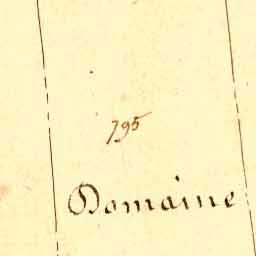 795
Domaine